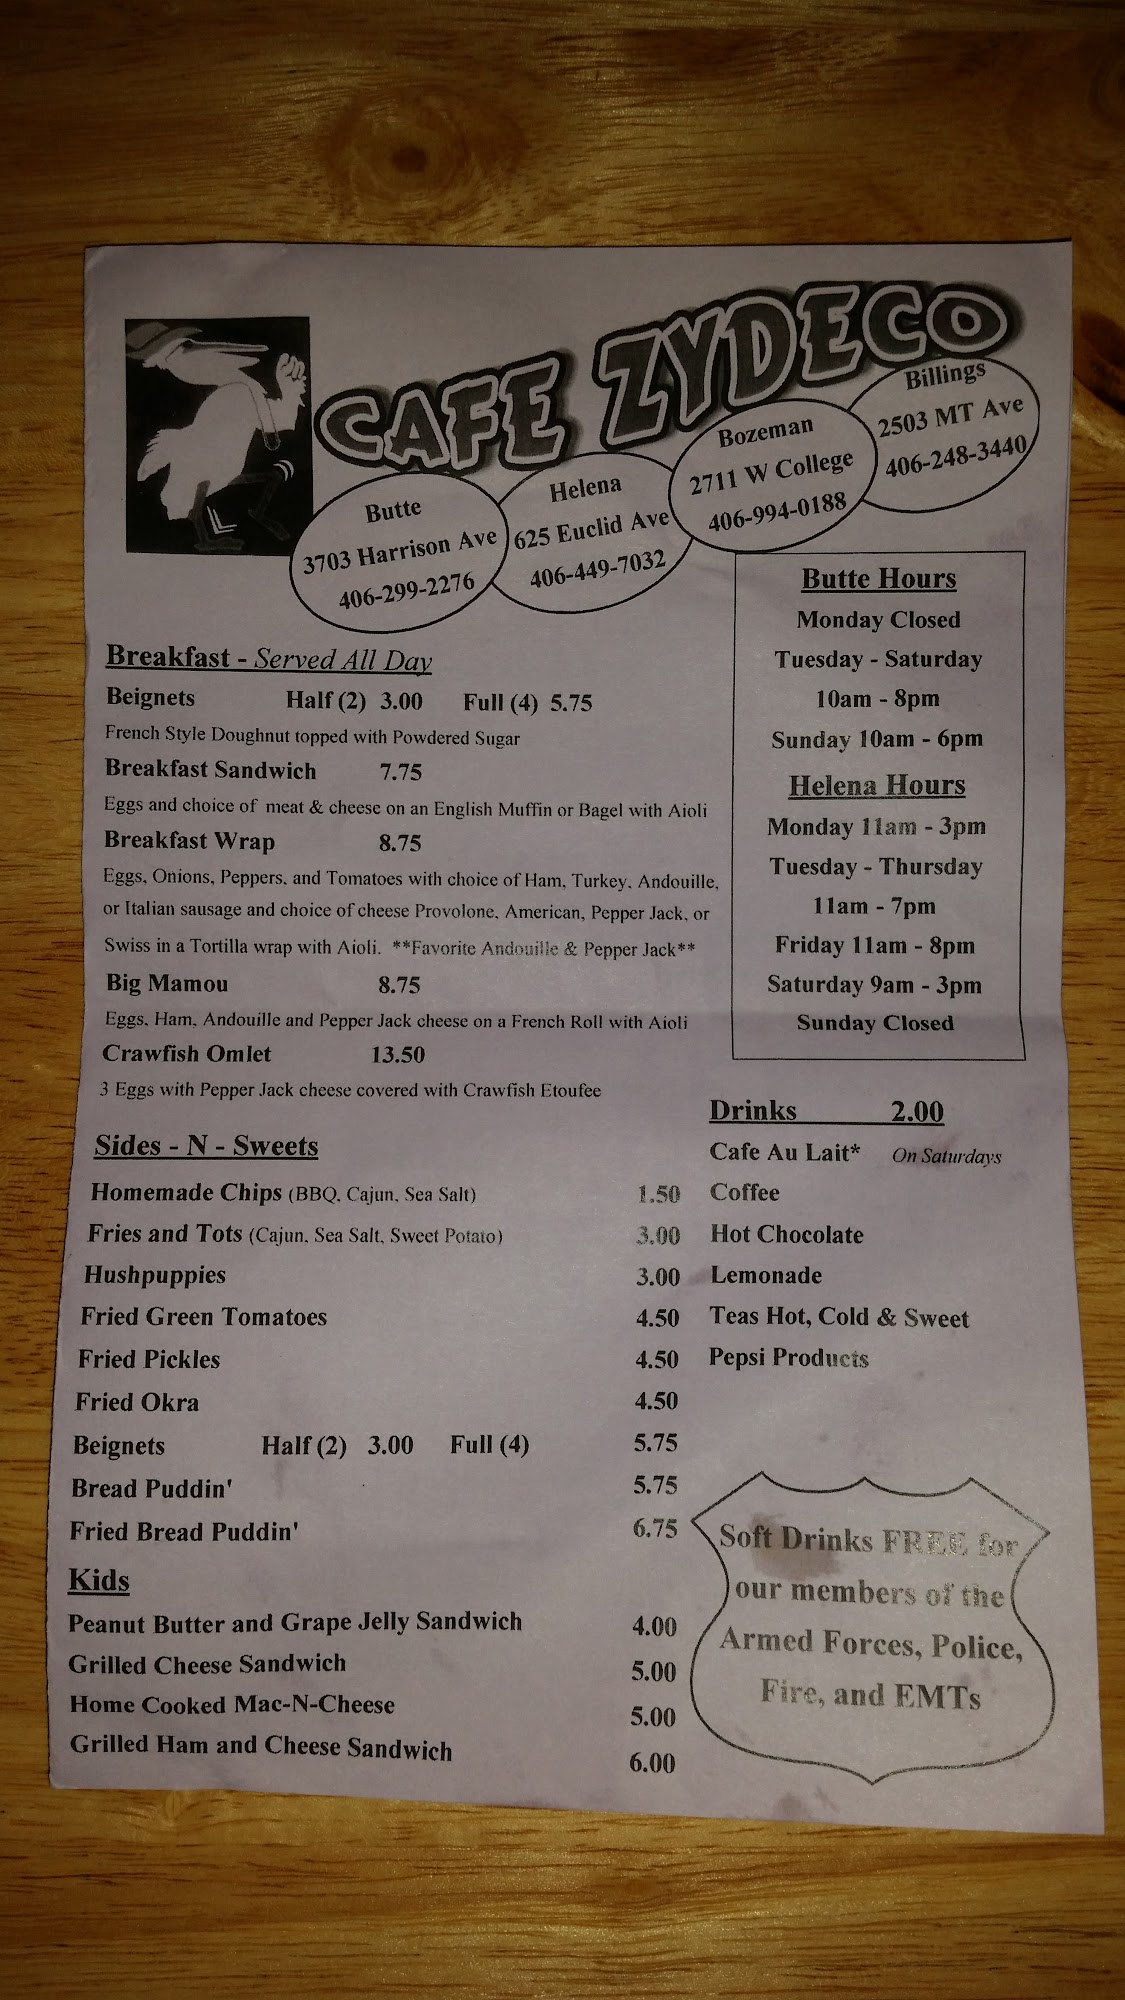 CAFE ZYDECO
Butte
3703 Harrison Ave
406-299-2276
Helena
625 Euclid Ave
406-449-7032
Bozeman
2711 W College
406-994-0188
Billings
2503 MT Ave
406-248-3440
Butte Hours
Monday Closed
Tuesday - Saturday
10am - 8pm
Sunday 10am - 6pm
Helena Hours
Monday 11am - 3pm
Tuesday - Thursday
11am - 7pm
Friday 11am - 8pm
Saturday 9am - 3pm
Sunday Closed
Breakfast - Served All Day
Beignets Half (2) 3.00 Full (4) 5.75
French Style Doughnut topped with Powdered Sugar
Breakfast Sandwich 7.75
Eggs and choice of meat & cheese on an English Muffin or Bagel with Aioli
Breakfast Wrap 8.75
Eggs, Onions, Peppers, and Tomatoes with choice of Ham, Turkey, Andouille,
or Italian sausage and choice of cheese Provolone, American, Pepper Jack, or
Swiss in a Tortilla wrap with Aioli. **Favorite Andouille & Pepper Jack**
Big Mamou 8.75
Eggs, Ham, Andouille and Pepper Jack cheese on a French Roll with Aioli
Crawfish Omlet 13.50
3 Eggs with Pepper Jack cheese covered with Crawfish Etoufee
Sides - N - Sweets
Homemade Chips (BBQ, Cajun, Sea Salt) 1.50
Fries and Tots (Cajun, Sea Salt, Sweet Potato) 3.00
Hushpuppies 3.00
Fried Green Tomatoes 4.50
Fried Pickles 4.50
Fried Okra 4.50
Beignets Half (2) 3.00 Full (4) 5.75
Bread Puddin' 5.75
Fried Bread Puddin' 6.75
Kids
Peanut Butter and Grape Jelly Sandwich 4.00
Grilled Cheese Sandwich 5.00
Home Cooked Mac-N-Cheese 5.00
Grilled Ham and Cheese Sandwich 6.00
Drinks 2.00
Cafe Au Lait* On Saturdays
Coffee
Hot Chocolate
Lemonade
Teas Hot, Cold & Sweet
Pepsi Products
Soft Drinks FREE for
our members of the
Armed Forces, Police,
Fire, and EMTs